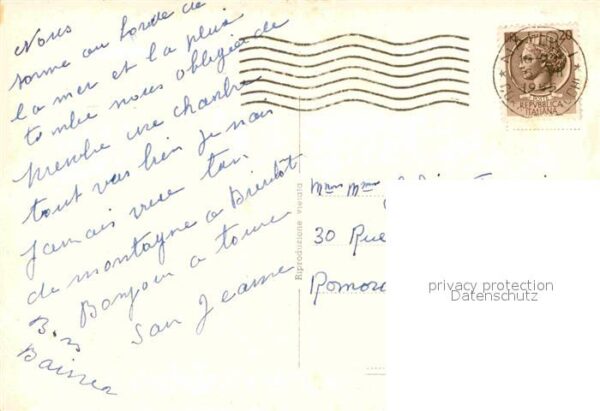 Nous
somme au borde de
la mer et la pluis
tombe nous obligée de
prendre une chambre
tout vas bien Je nais
Jamais vue tan
de montagne a Bientôt
Bonjour a tous
San Jeanne
Baisser
Riproduzione vietata
20
REPVBBLICA
ITALIANA
30 Rue
privacy protection
Datenschutz